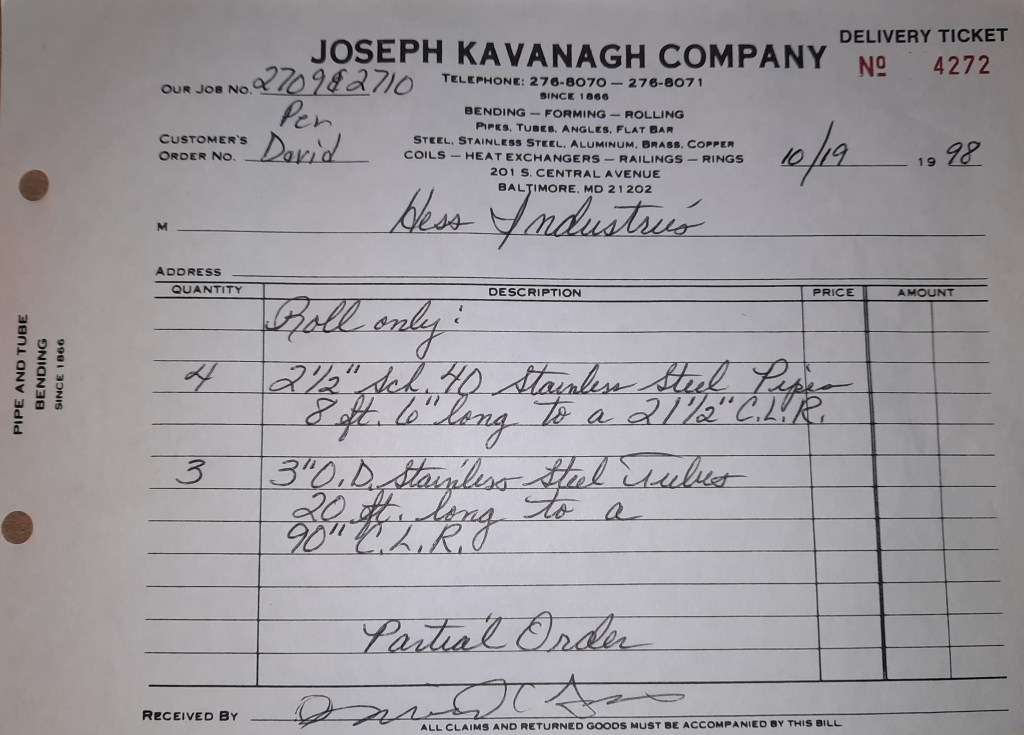 DELIVERY TICKET
JOSEPH KAVANAGH COMPANY
Nº 4272
OUR JOB NO. 2709 & 2710
TELEPHONE: 276-8070 — 276-8071
SINCE 1866
BENDING — FORMING — ROLLING
PIPES, TUBES, ANGLES, FLAT BAR
STEEL, STAINLESS STEEL, ALUMINUM, BRASS, COPPER
COILS — HEAT EXCHANGERS — RAILINGS — RINGS
201 S. CENTRAL AVENUE
BALTIMORE, MD 21202
Per
CUSTOMER'S
ORDER NO. David
10/19 1998
M Hess Industries
ADDRESS
QUANTITY DESCRIPTION PRICE AMOUNT
Roll only:
4 2 1/2" Sch. 40 Stainless Steel Pipes
8 ft. 6" long to a 21 1/2" C.L.R.
3 3" O.D. Stainless Steel Tubes
20 ft. long to a
90" C.L.R.
Partial Order
RECEIVED BY
ALL CLAIMS AND RETURNED GOODS MUST BE ACCOMPANIED BY THIS BILL
PIPE AND TUBE
BENDING
SINCE 1866